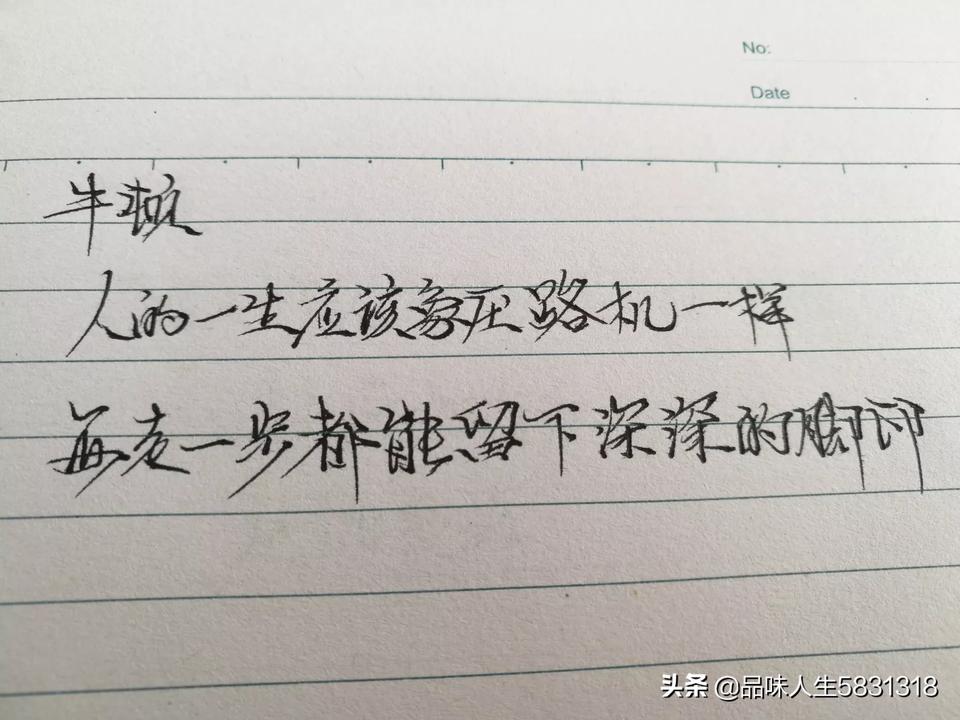 No:
Date
牛顿
人的一生应该象压路机一样
每走一步都能留下深深的脚印
头条 @品味人生5831318